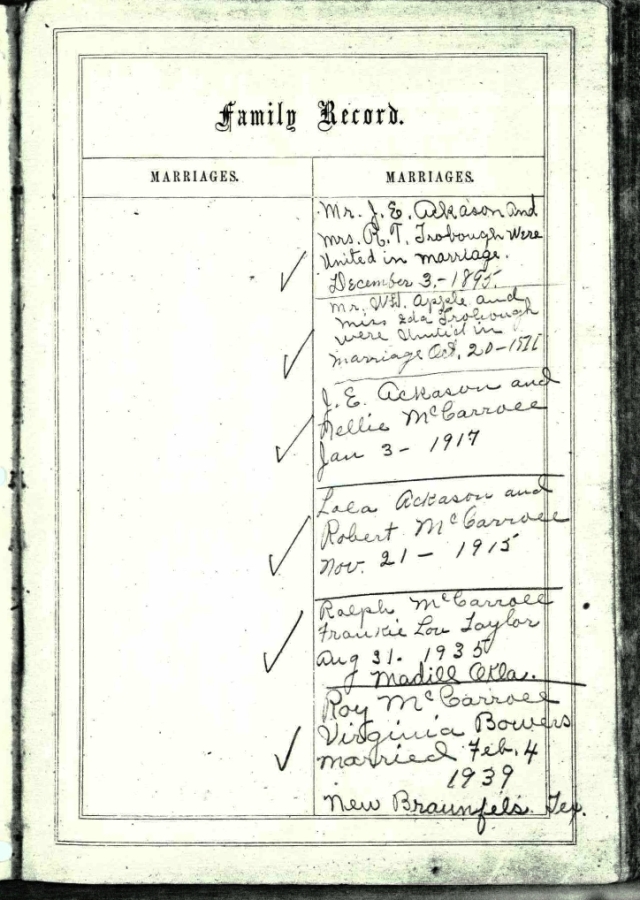 Family Record.
MARRIAGES.
MARRIAGES.
Mr. J. E. Ackason and
Mrs. R. T. Trobough Were
United in Marriage.
December 3,-1895.
Mr. W.H. Apple and
Miss Eda Trobough
were United in
Marriage Oct. 20-
J. E. Ackason and
Nellie McCarroll
Jan 3 - 1917
Lola Ackason and
Robert McCarroll
Nov. 21 - 1915
Ralph McCarroll
Frankie Lou Taylor
Aug 31. 1935
Madill Okla.
Roy McCarroll
Virginia Bowers
married Feb. 4
1939
New Braunfels Tex.